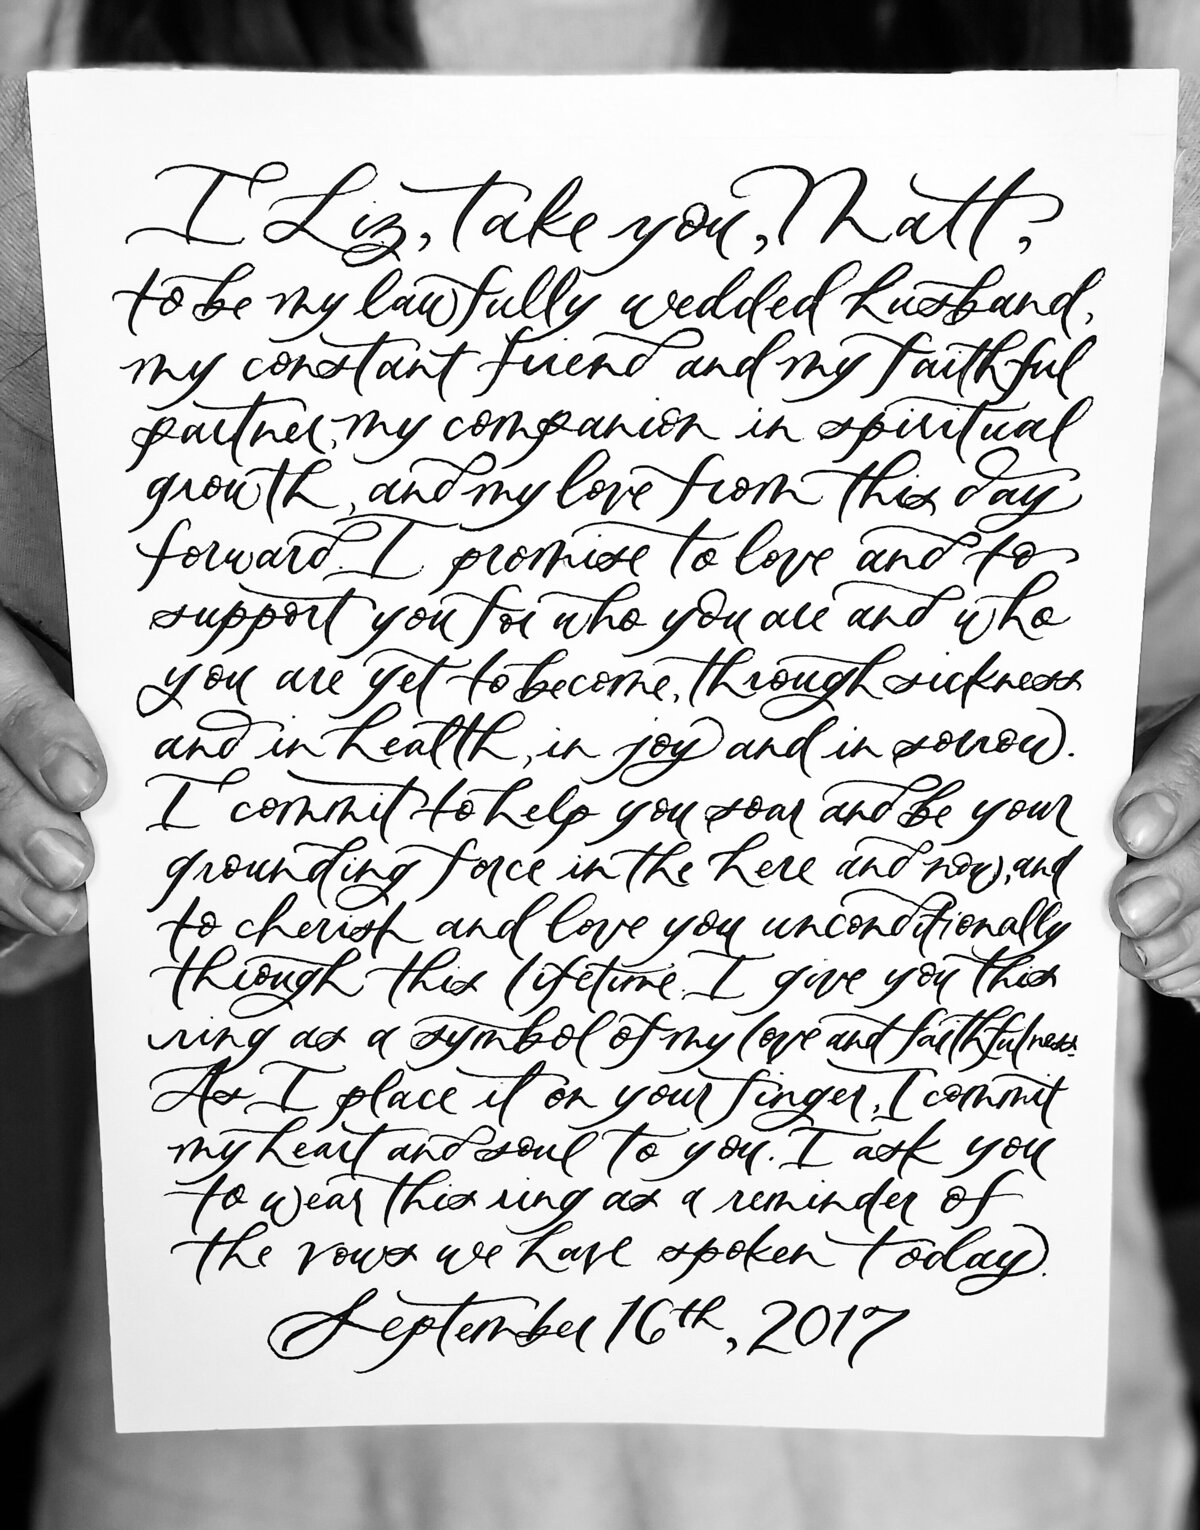 I Liz, take you, Matt,
to be my lawfully wedded husband,
my constant friend and my faithful
partner, my companion in spiritual
growth, and my love from this day
forward. I promise to love and to
support you for who you are and who
you are yet to become, through sickness
and in health, in joy and in sorrow.
I commit to help you soar and be your
grounding force in the here and now, and
to cherish and love you unconditionally
through this lifetime. I give you this
ring as a symbol of my love and faithfulness.
As I place it on your finger, I commit
my heart and soul to you. I ask you
to wear this ring as a reminder of
the vows we have spoken today.
September 16th, 2017